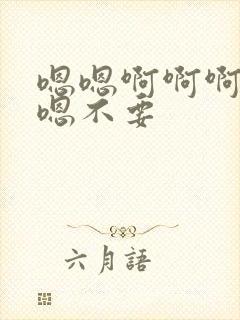 嗯嗯啊啊啊
嗯不要
六月語